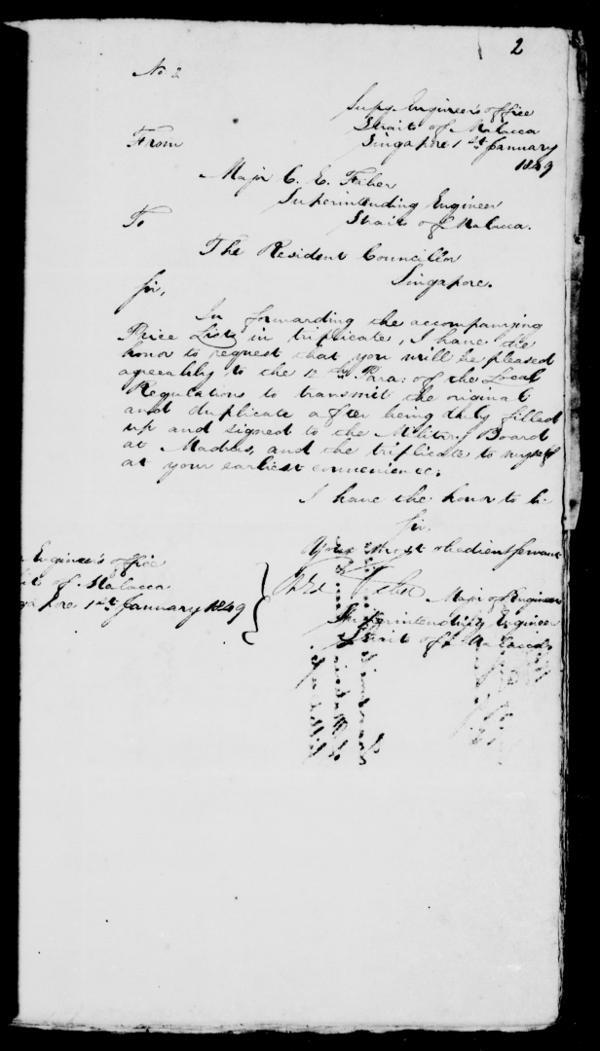 2
No 2
Supg. Engineer's office
Strait of Malacca
Singapore 1st January
1849
From
Major C. E. Faber
Superintending Engineer
Strait of Malacca.
To
The Resident Councillor
Singapore.
Sir,
In forwarding the accompanying
Price Lists in triplicate, I have the
honor to request that you will be pleased
agreeably to the 12th Para: of the Local
Regulations to transmit the original
and duplicate after being duly filled
up and signed to the Military Board
at Madras, and the triplicate to myself
at your earliest convenience.
I have the honor to be
Sir.
Your most obedient servant
Major of Engineer
Superintending Engineer
Strait of Malacca
Engineer's office
it of Malacca
pore 1st January 1849